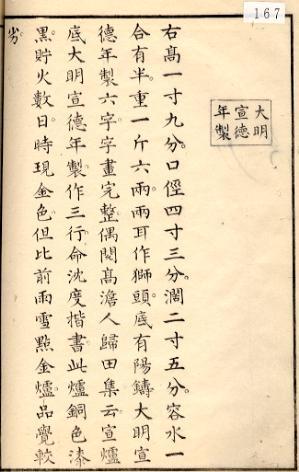 167
大明
宣德
年製
右高一寸九分。口徑四寸三分。濶二寸五分。容水一
合有半。重一斤六兩。兩耳作獅頭。底有陽鑄大明宣
德年製六字。字畫完整。偶閱高澹人歸田集云。宣爐
底大明宣德年製。作三行。命沈度楷書。此爐銅色漆
黑。貯火數日。時現金色。但比前雨雪點金爐。品覺較
劣。